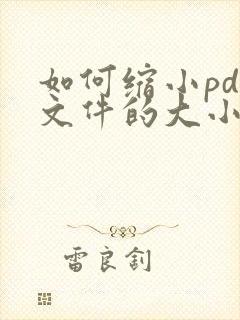 如何缩小pd
文件的大小
雷良钊